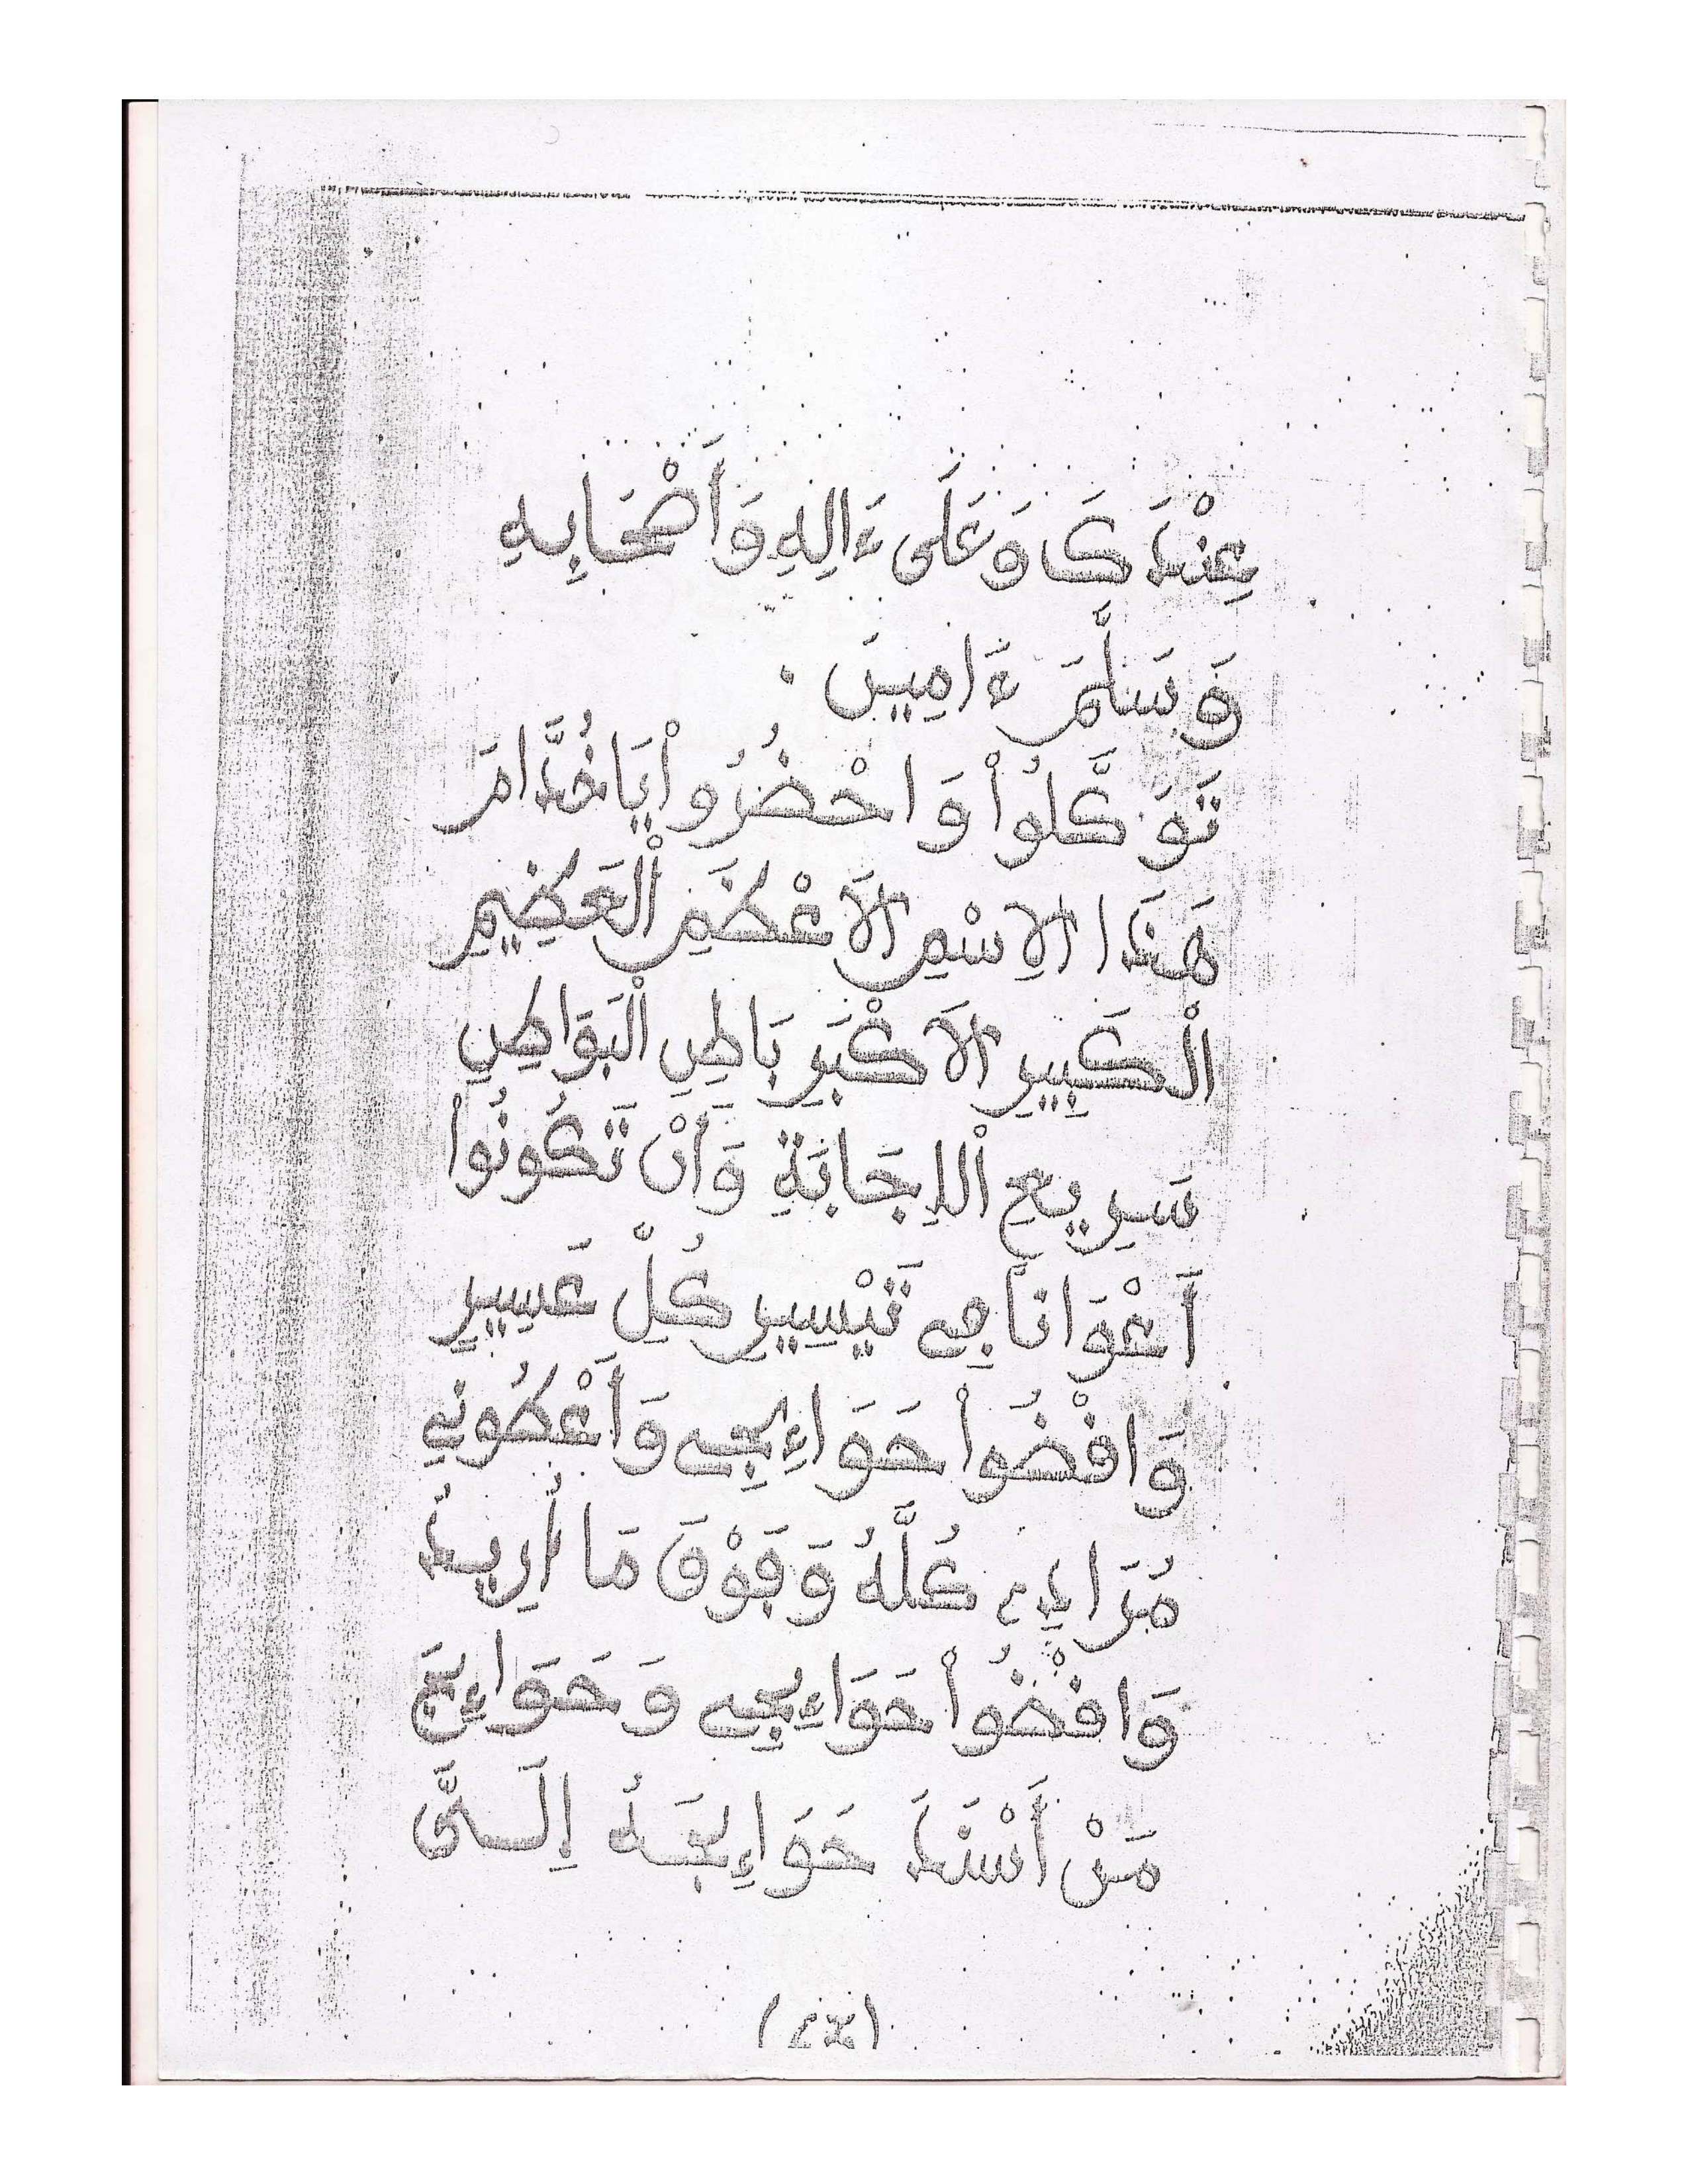 عِنْدَكَ وَعَلَى ءَالِهِ وَأَصْحَابِهِ
وَسَلَّمَ ءَامِينَ .
تَوَكَّلُواْ وَاحْضُرُواْ يَاخُدَّامَ
هَذَا الاِسْمِ الاَعْظَمِ الْعَظِيمِ
الْكَبِيرِ الاَكْبَرِ بَاطِنِ الْبَوَاطِنِ
سَرِيعِ اْلاِجَابَةِ وَأَنْ تَكُونُواْ
أَعْوَاناً فِي تَيْسِيرِ كُلِّ عَسِيرٍ
وَاقْضُواْ حَوَاءِجِي وَأَعْطُونِي
مُرَادِي كُلَّهُ وَفَوْقَ مَا أُرِيدُ
وَاقْضُواْ حَوَاءِجِي وَحَوَاءِجَ
مَنْ أَسْنَدَ حَوَاءِجَهُ إِلَىَّ